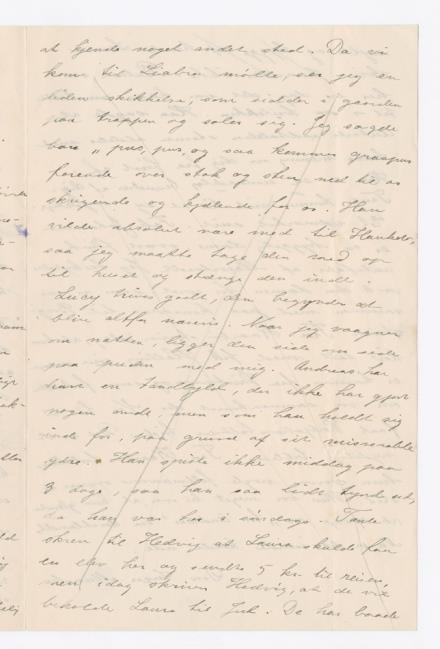 at kjende noget andet sted. Da vi
kom til Liabro mølle, ser jeg en
liden skikkelse, som sidder i gaarden
paa trappen og soler sig. Jeg sagde
bare „pus, pus, og saa kommer graapus
farende over stok og sten ned til os
skrigende og kjælende for os. Han
vilde absolut være med til Hauketo,
saa jeg maatte tage den med op
til huset og stænge den inde.
Lucy trives godt, den begynder at
blive altfor nærvis. Naar jeg vaagner
om natten, ligger den side om side
paa puden med mig. Andreas har
havt en tandbyld, der ikke har gjort
nogen ondt, men som han holdt sig
inde for, paa grund af sit miserable
ydre. Han spiste ikke middag paa
3 dage, saa han saa lidt tynd ud,
da han var her i søndags. Tante
skrev til Hedvig at Laura skulde faa
lov her og sendte 5 kr. til reisen,
men idag skriver Hedvig, at de vil
beholde Laura til Jul. De har baade